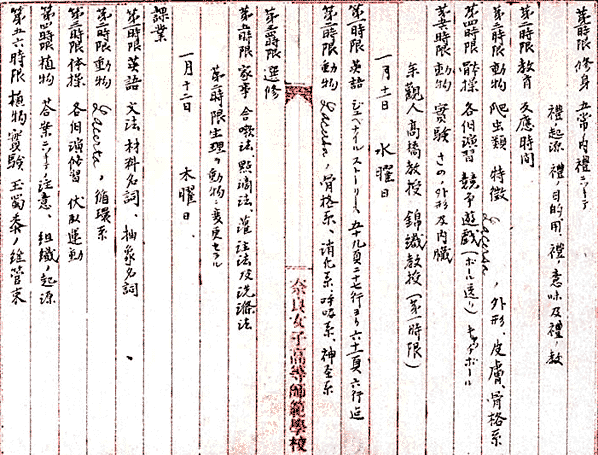 第一時限 修身 五常ノ内禮ニツキテ
禮ノ起源 禮ノ目的用、禮ノ意味及禮ノ教
第二時限 教育 反應時間.
第三時限 動物 爬虫類ノ特徴 Lacerta ノ外形、皮膚、骨格系
第四時限 體操 各個演習 競争遊戯(ボール送り) キャプテンボール
第五六時限 動物 實驗 さめノ外形及内臓
参觀人 高橋教授 錦織教授(第一時限)
一月十一日 水曜日
第一時限 英語 ジュベナイルストーリース 五十九頁二十七行ヨリ六十一頁六行迄
第二時限 動物 Lacerta ノ骨格系、消化系、呼吸系、神全系
奈良女子高等師範學校
第三四時限 選修
第五時限 家事 含嗽法、點滴法、灌注法及洗滌法
第六時限生理ハ動物ニ変更セラル
一月十二日 木曜日
課業
第一時限 英語 文法 材料名詞、抽象名詞
第二時限 動物 Lacerta ノ循環系
第三時限 体操 各個演習 代表運動
第四時限 植物 答案ニツキテノ注意、組織ノ起源
第五六時限 植物實驗 玉蜀黍ノ維管束